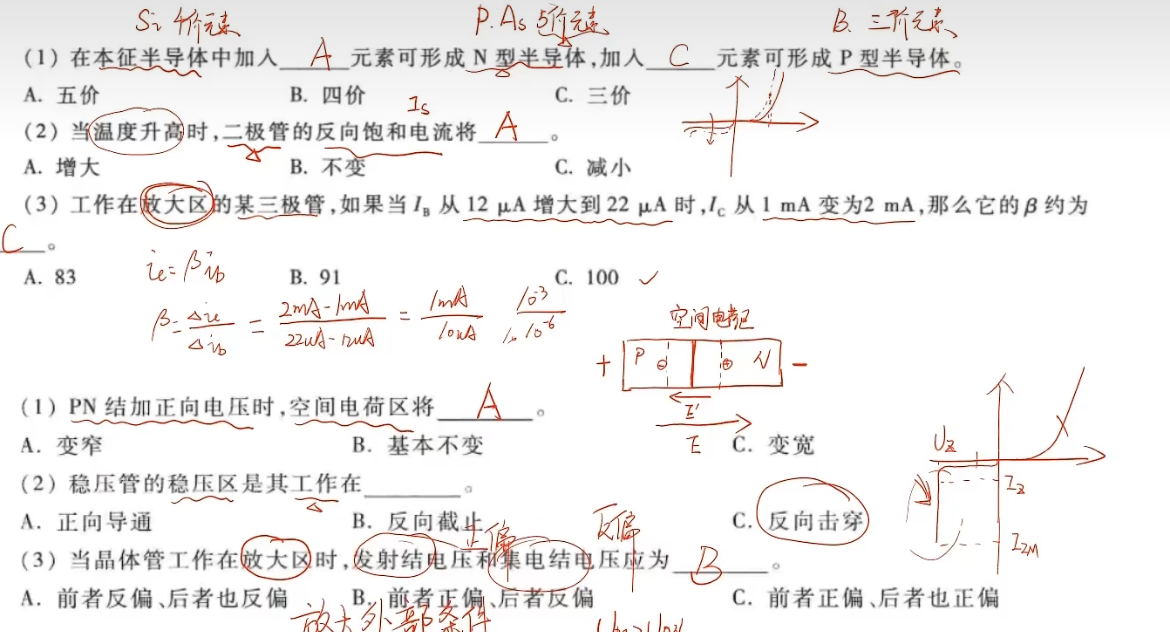 Si 4价元素 P. As 5价元素 B. 三价元素
(1) 在本征半导体中加入 A 元素可形成 N 型半导体,加入 C 元素可形成 P 型半导体。
A. 五价 B. 四价 C. 三价
Is
(2) 当温度升高时,二极管的反向饱和电流将 A 。
A. 增大 B. 不变 C. 减小
(3) 工作在放大区的某三极管,如果当 IB 从 12 μA 增大到 22 μA 时,IC 从 1 mA 变为2 mA,那么它的 β 约为
C 。
A. 83 B. 91 C. 100 ✓
ic = βib
β = Δic/Δib = (2mA-1mA)/(22uA-12uA) = 1mA/10uA 10-3/10-6
空间电荷区
+ P ⊖ ⊕ N -
E'
E
(1) PN 结加正向电压时,空间电荷区将 A 。
A. 变窄 B. 基本不变 C. 变宽
UZ
IZ
IZM
(2) 稳压管的稳压区是其工作在 。
A. 正向导通 B. 反向截止 C. 反向击穿
正偏 反偏
(3) 当晶体管工作在放大区时,发射结电压和集电结电压应为 B 。
A. 前者反偏、后者也反偏 B. 前者正偏、后者反偏 C. 前者正偏、后者也正偏
放大外部条件